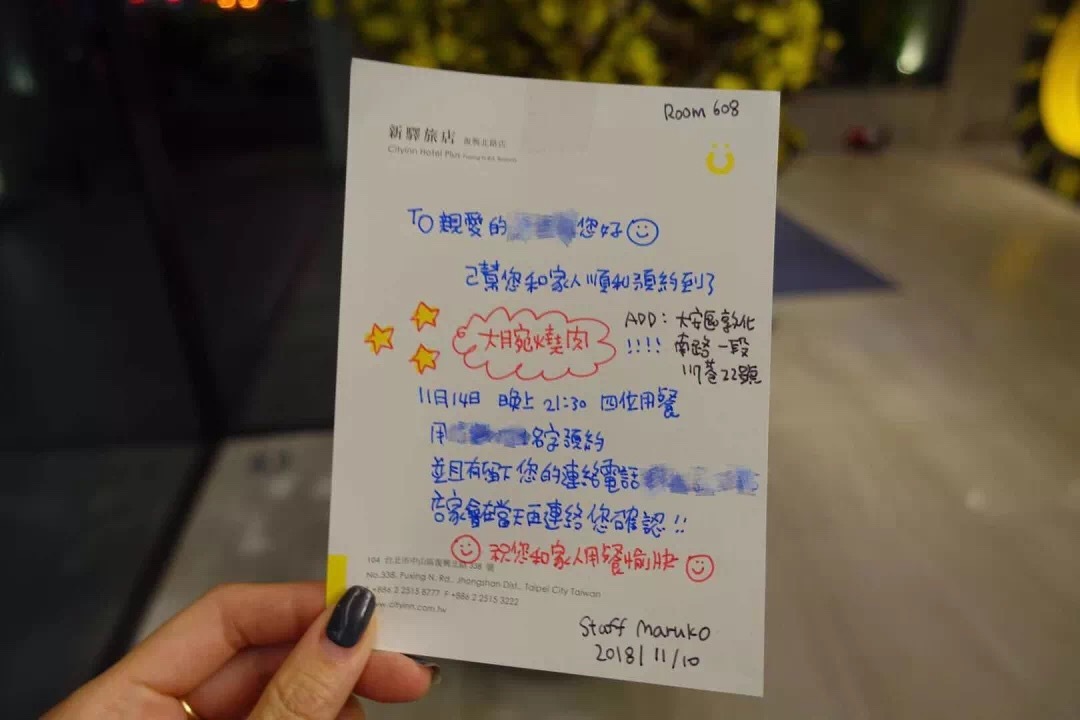 Room 608
新驛旅店 復興北路店
CityInn Hotel Plus Fuxing N. Rd. Branch
TO 親愛的 您好
已幫您和家人順利預約到了
大腕燒肉
ADD: 大安區敦化
!!!! 南路一段
117巷22號
11月14日 晚上 21:30 四位用餐
用 名字預約
並且有留下您的連絡電話
店家會在當天再連絡您確認!!
祝您和家人用餐愉快
104 台北市中山區復興北路338號
No.338, Fuxing N. Rd., Jhongshan Dist., Taipei City Taiwan
+886 2 2515 8777 F +886 2 2515 3222
www.cityinn.com.tw
Staff Maruko
2018/11/10